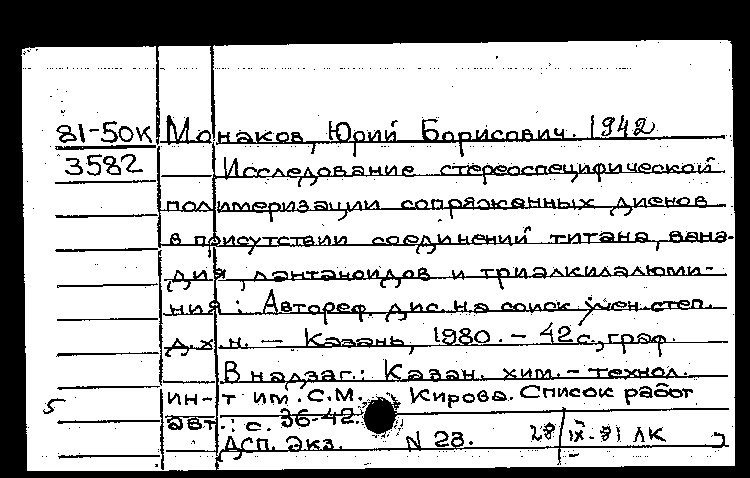 81-50к Монаков, Юрий Борисович. 1942
3582 Исследование стереоспецифической
полимеризации сопряженных диенов
в присутствии соединений титана, вана-
дия, лантаноидов и триалкилалюми-
ния: Автореф. дис. на соиск учен. степ.
д. х. н. — Казань, 1980. — 42с, граф.
В надзаг.: Казан. хим.-технол.
ин-т им. С.М. Кирова. Список работ
5 авт.: с. 36-42.
ДСП. Экз. N 23. 28/IX-81 ЛК